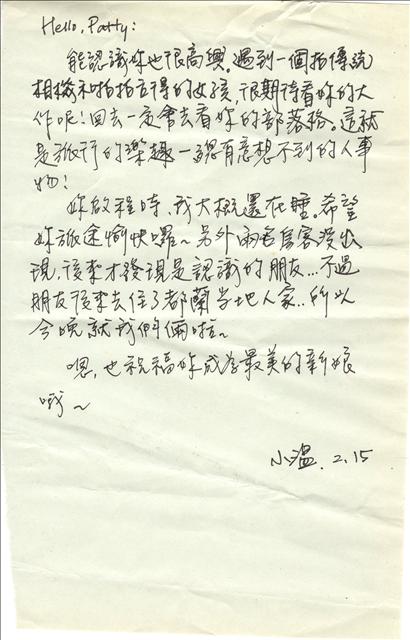 Hello, Patty:
能認識妳也很高興。遇到一個拍傳統
相格和拍拍立得的女孩，很期待看妳的大
作呢！回去一定會去看妳的部落格。這就
是旅行的樂趣—總有意想不到的人事
物！
妳啟程時，我大概還在睡，希望
妳旅途愉快囉～另外兩名房客沒出
現，後來才發現是認識的朋友…不過
朋友後來去住了都蘭當地人家…所以
今晚就我們倆啦～
嗯，也祝福妳成為最美的新娘
哦～
小溫. 2.15